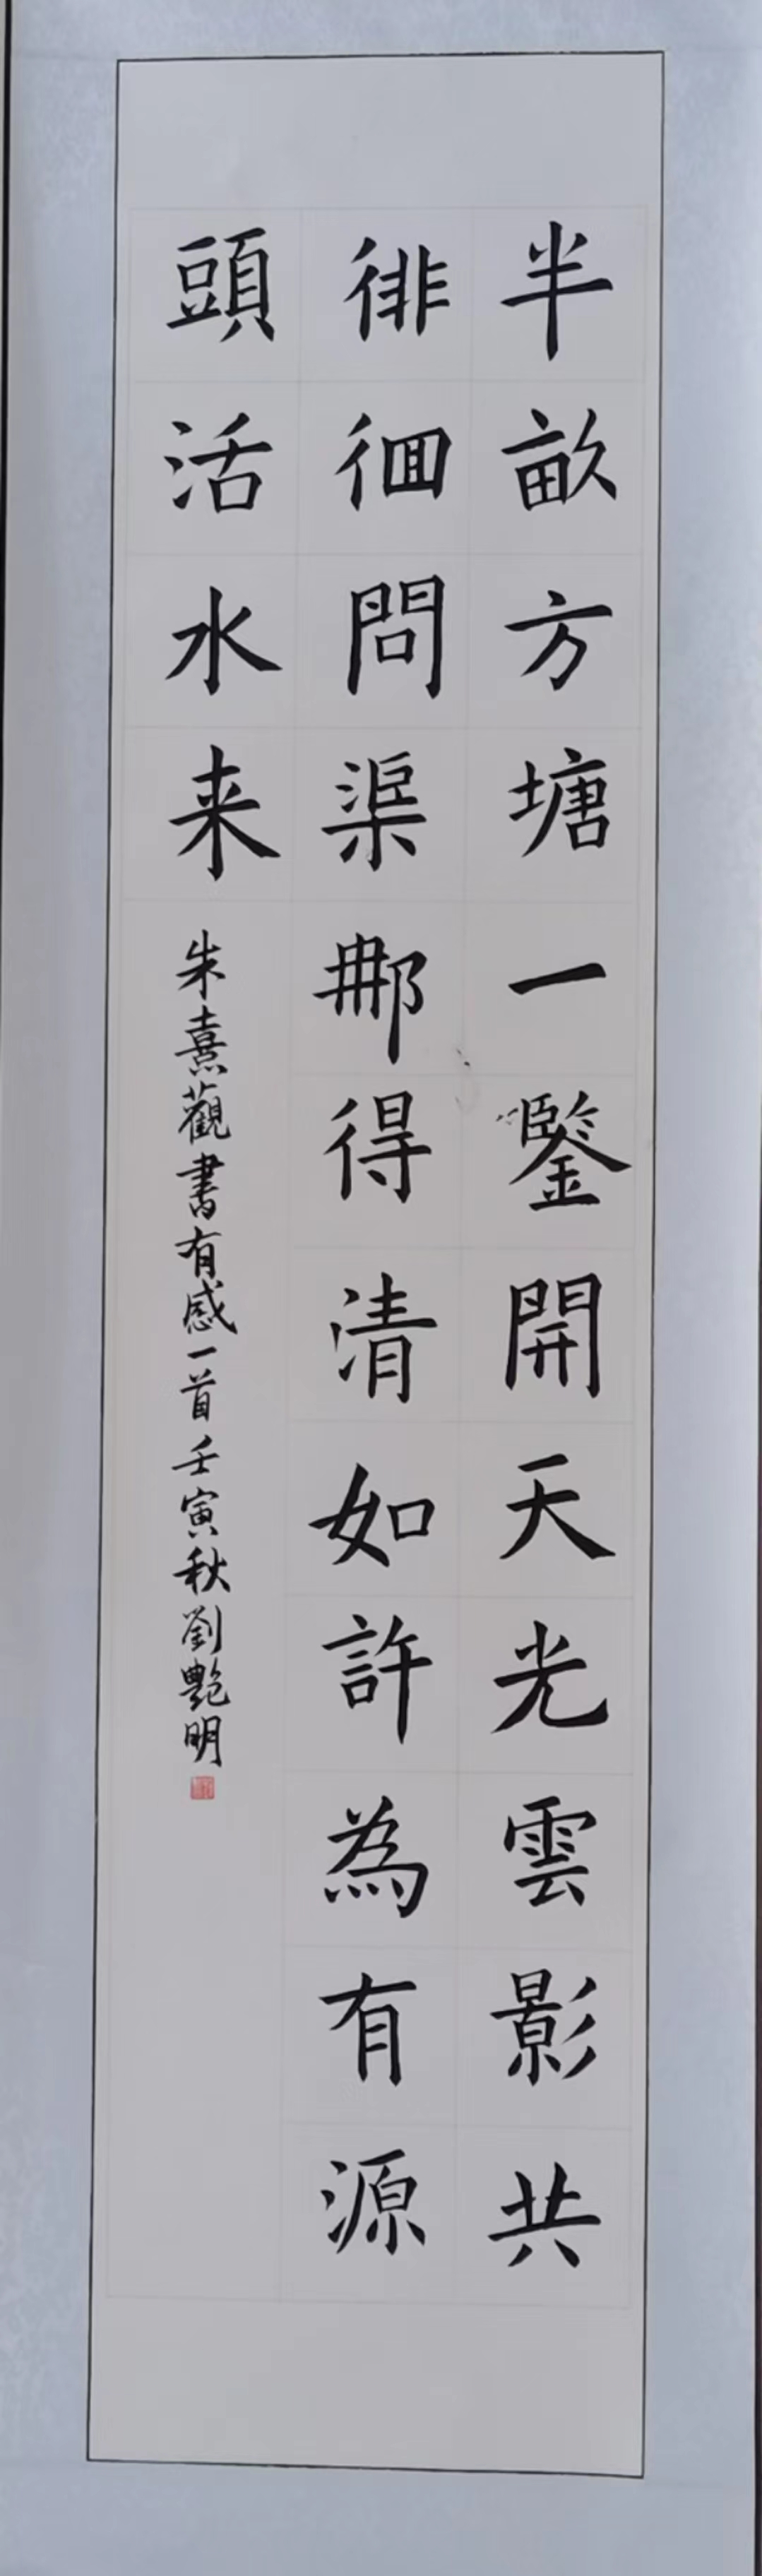 半畝方塘一鑒開天光雲影共
徘徊問渠那得清如許為有源
頭活水来
朱熹觀書有感一首壬寅秋劉艷明